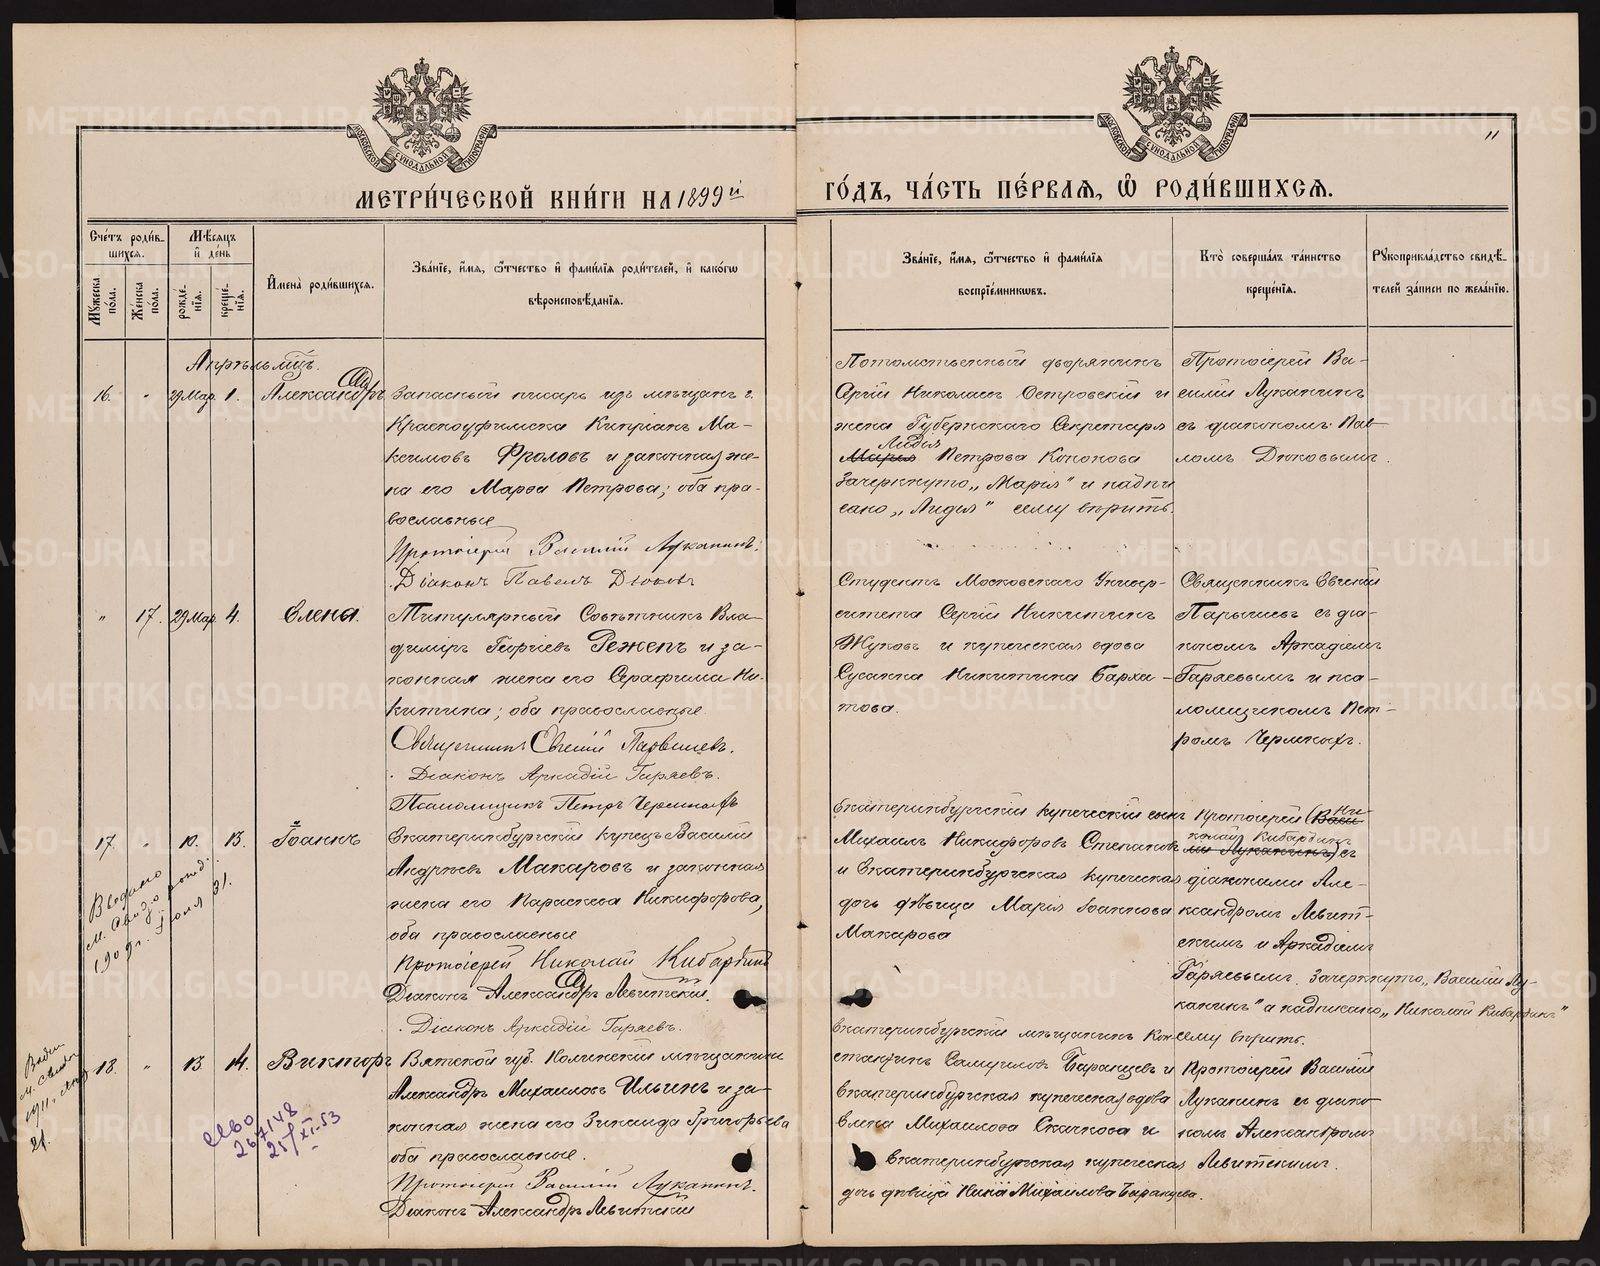 МЕТРИ́ЧЕСКОЙ КНИ́ГИ НА 1899 й
ГО́ДЪ, ЧА́СТЬ ПЕ́РВАЯ, Ѽ РОДИ́ВШИХСЯ.
"
Сче́тъ роди́в-
шихся.
Мѣ́сяцъ
и҆ де́нь
Мꙋ́жеска
по́ла.
Же́нска
по́ла.
рожде́-
нїя.
креще́-
нїя.
И҆мена̀ роди́вшихся.
Зва́нїе, и҆́мя, ѻ҆́тчество и҆ фами́лїя роди́телей, и҆ како́гѡ
вѣроисповѣ́данїя.
Зва́нїе, и҆́мя, ѻ҆́тчество и҆ фами́лїя
воспрїе́мникѡвъ.
Кто̀ соверша́лъ та́инство
креще́нїя.
Рꙋкоприкла́дство свидѣ́-
телей за́писи по жела́нїю.
Апрѣль мѣц.
16. " 29 Мар. 1. Александръ
Запасный писарь изъ мѣщанъ г.
Красноуфимска Кипріанъ Ма-
ксимовъ Фроловъ и законная же-
на его Марѳа Петрова; оба пра-
вославные
Протоіерей Василій Луканинъ.
Діаконъ Павелъ Дюковъ
Потомственный дворянинъ
Сергій Николаевъ Островскій и
жена Губернскаго Секретаря
Лидія
Марія Петрова Кононова
Зачеркнуто „Марія" и надпи
сано „Лидія" сему вѣрить.
Протоіерей Ва-
силій Луканинъ
съ діакономъ Пав-
ломъ Дюковымъ.
" 17. 29 Мар. 4. Елена.
Титулярный Совѣтникъ Вла-
диміръ Георгіевъ Режепъ и за-
конная жена его Серафима Ни-
китина; оба православные
Священникъ Евгеній Парышевъ.
Діаконъ Аркадій Гаряевъ.
Псаломщикъ Петръ
Студентъ Московскаго Универ-
ситета Сергій Никитинъ
Жуковъ и купеческая вдова
Сусанна Никитина Барха-
това.
Священникъ Евгеній
Парышевъ съ діа-
кономъ Аркадіемъ
Гаряевымъ и пса-
ломщикомъ Пет-
ромъ
17. " 10. 13. Іоаннъ
Екатеринбургскій купецъ Василій
Андреевъ Макаровъ и законная
жена его Параскева Никифорова,
оба православные
Протоіерей Николай Кибардинъ
Діаконъ Александръ Левитскій.
Діаконъ Аркадій Гаряевъ.
Екатеринбургскій купеческій сынъ
Михаилъ Никифоровъ Степановъ
и Екатеринбургская купеческая
дочь дѣвица Марія Іоаннова
Макарова
Протоіерей (Васи Ни-
колай Кибардинъ
лій Луканинъ) съ
діаконами Але-
ксандромъ Левит-
скимъ и Аркадіемъ
Гаряевымъ. Зачеркнуто „Василій Лу-
канинъ" а надписано „Николай Кибардинъ"
сему вѣрить.
Выдано
м. свид.
1909 г. Іюля 31.
18. " 13 14. Викторъ
Вятской губ. Нолинскій мѣщанинъ
Александръ Михаиловъ Ильинъ и за-
конная жена его Зинаида Григорьева
оба православные.
Протоіерей Василій Луканинъ.
Діаконъ Александръ Левитскій
Екатеринбургскій мѣщанинъ Кон-
стантинъ Самуиловъ Баранцевъ и
Екатеринбургская купеческая вдова
Елена Михаилова Скачкова и
Екатеринбургская купеческая
дочь дѣвица Нина Михаилова Баранцева.
Протоіерей Василій
Луканинъ съ діако-
номъ Александромъ
Левитскимъ.
Выдан
м. свид.
1911.
21.
267148
25/XI-53
METRIKI.GASO-URAL.RU